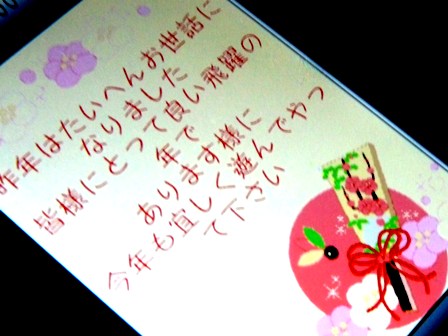 昨年はたいへんお世話に
なりました
皆様にとって良い飛躍の
年で
あります様に
今年も宜しく遊んでやっ
て下さい